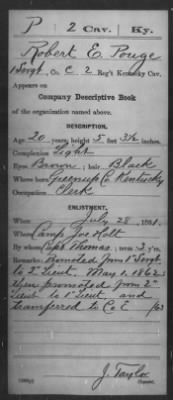 P 2 Cav. Ky.
Robert E. Pouge
1 Sergt, Co. C 2 Reg't Kentucky Cav.
Appears on
Company Descriptive Book
of the organization named above.
DESCRIPTION.
Age 20 years; height 5 feet 3½ inches.
Complexion Light
Eyes Brown; hair Black
Where born Greenup Co Kentucky
Occupation Clerk
ENLISTMENT.
When July 28, 1861.
Where Camp Joe Holt
By whom Capt Thomas; term 3 y'rs.
Remarks: Promoted from 1st Sergt
to 2" Lieut. May 1, 1862
then promoted from 2"
Lieut to 1" Lieut and
transferred to Co E
J. Taylor